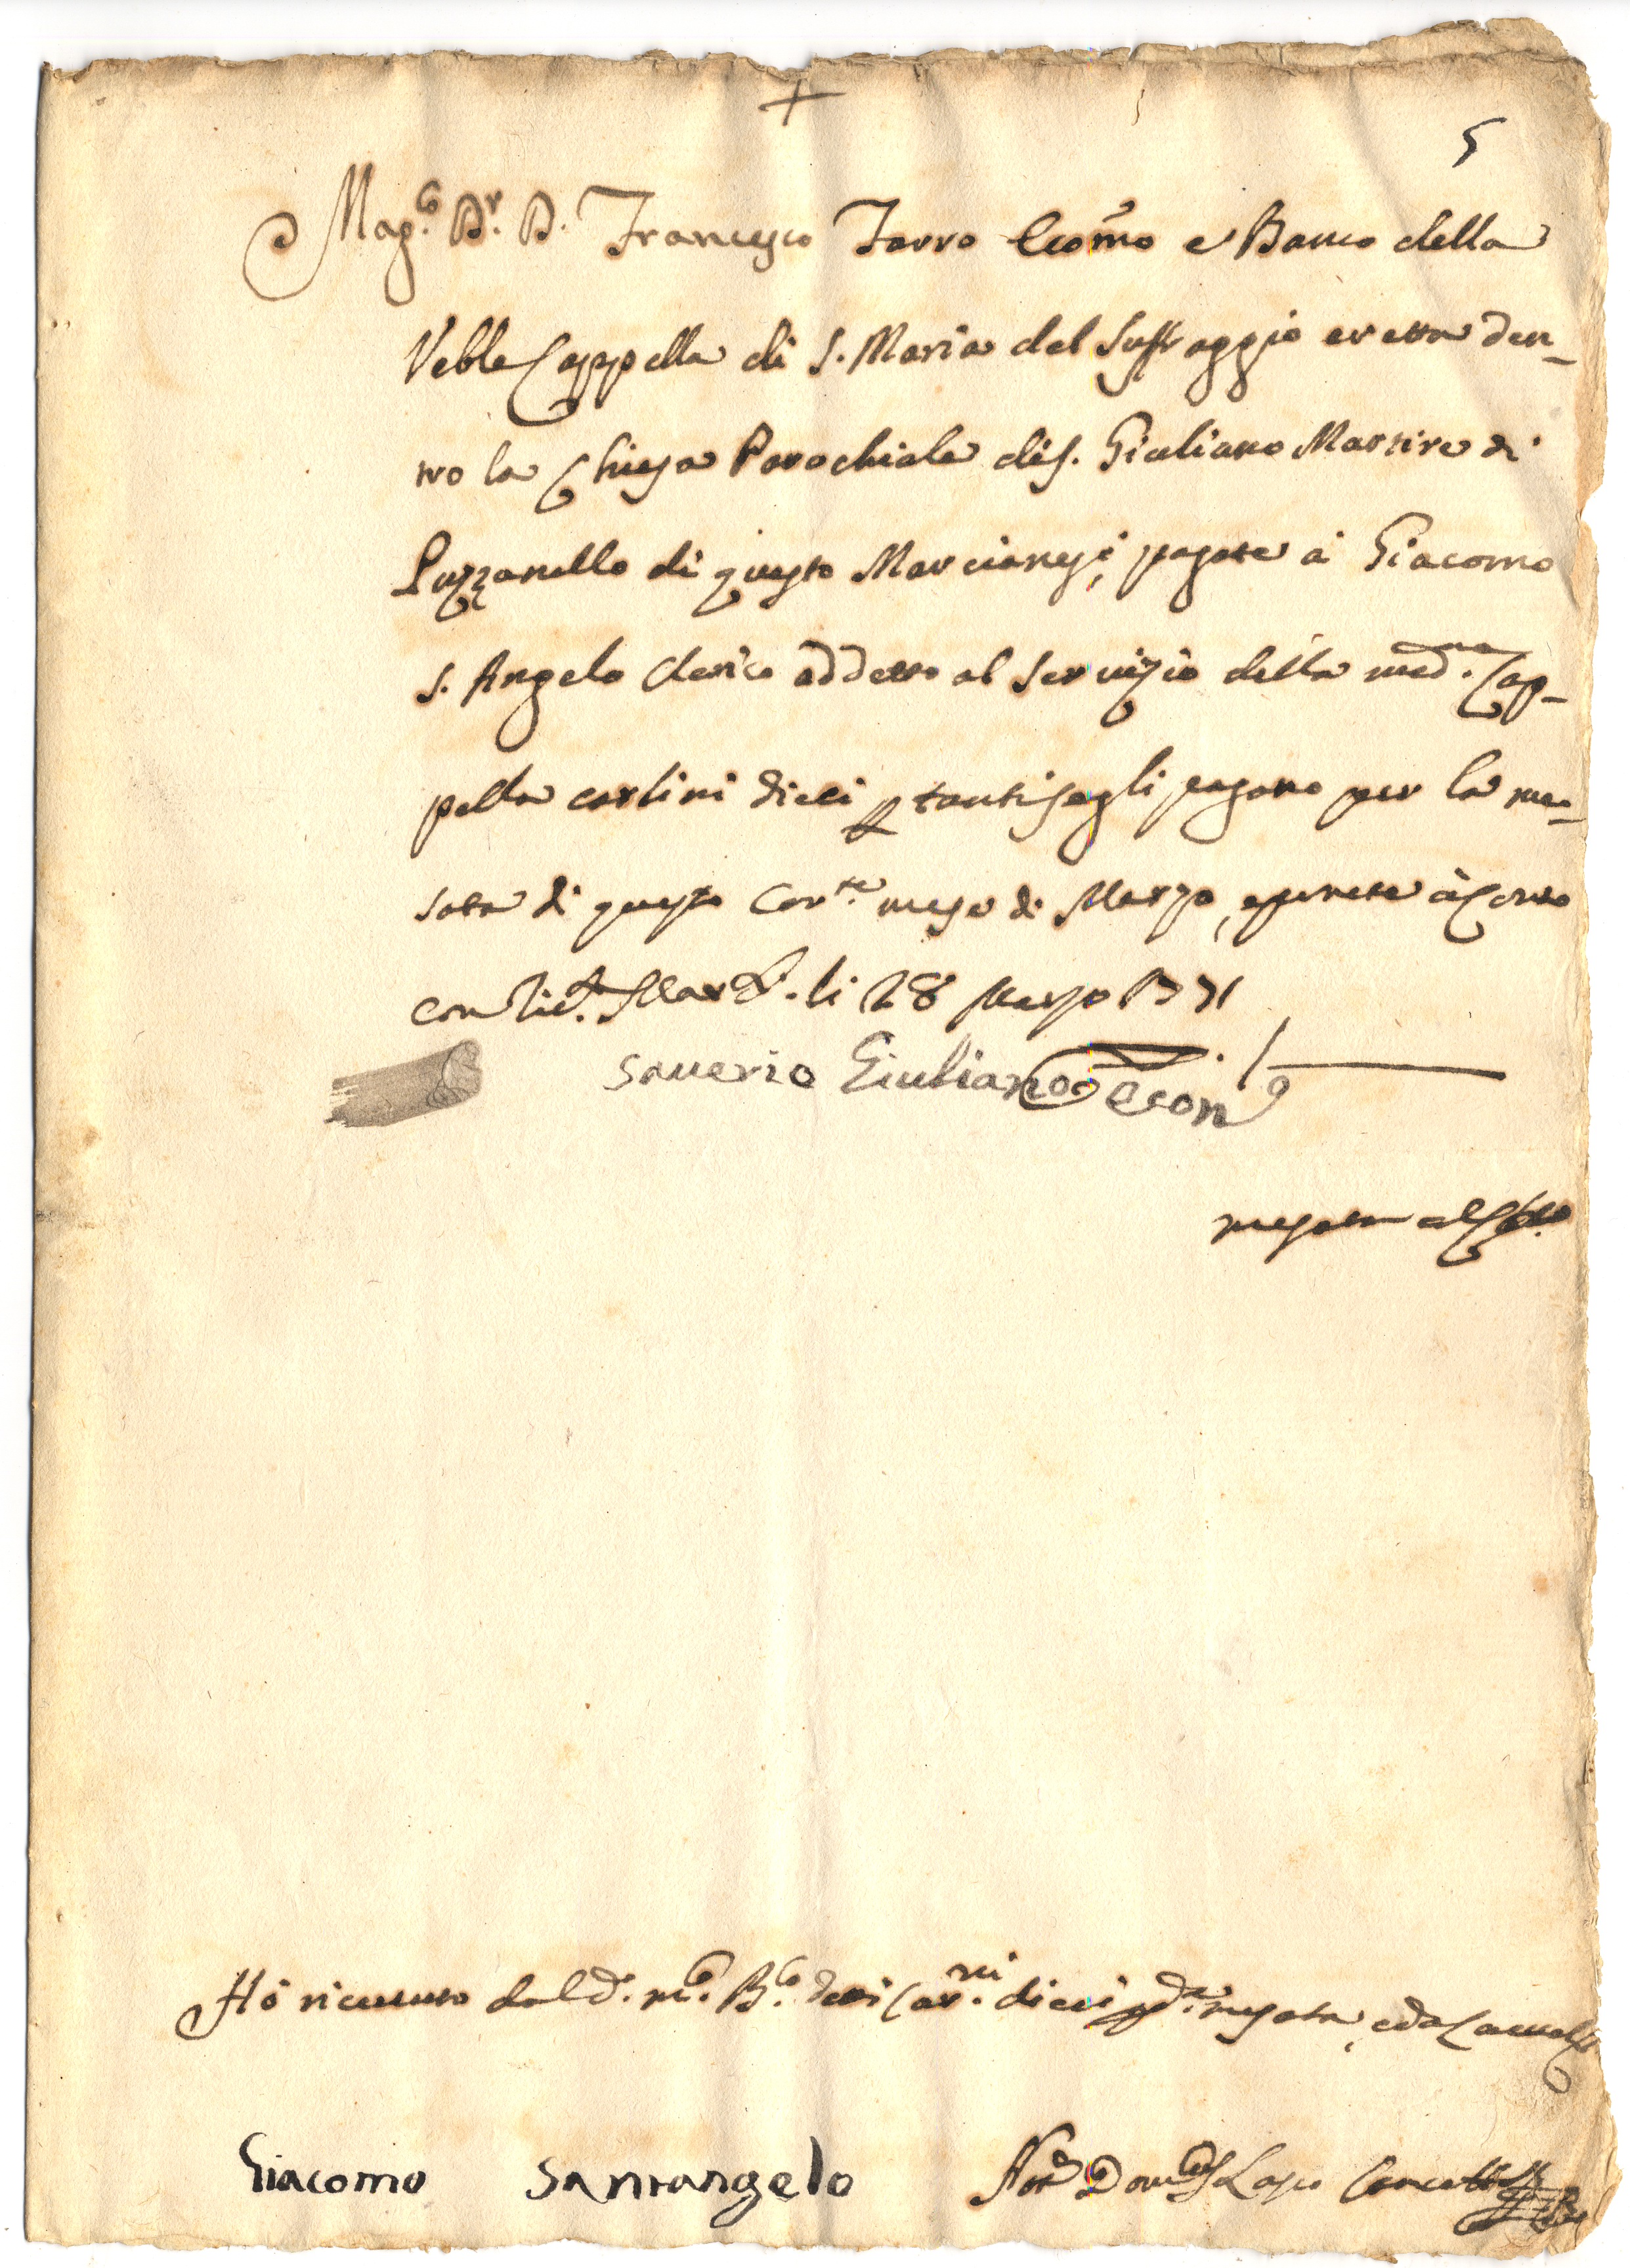 5
Mag.co Dr. D. Francesco Tarro Ecomo e Banco della
Veble Cappella di S. Maria del Suffraggio eretta den-
tro la Chiesa Parochiale di S. Giuliano Martire di
Puzzanello di questo Marcianesi, pagate à Giacomo
S. Angelo Clerico addetto al servizio della med.ma Cap-
pella carlini dieci p tanti segli pagano per la me-
sata di questo Corr.te mese di Marzo, e ponete à Conto
con lic.a Mar. li 28 Marzo 1771
Saverio Giuliano Econ
mesata al
Hò ricevuto dal d.o m.co B.co detti Car.ni dieci p d.a mesata, ed à Cautela
Giacomo Santangelo
Not